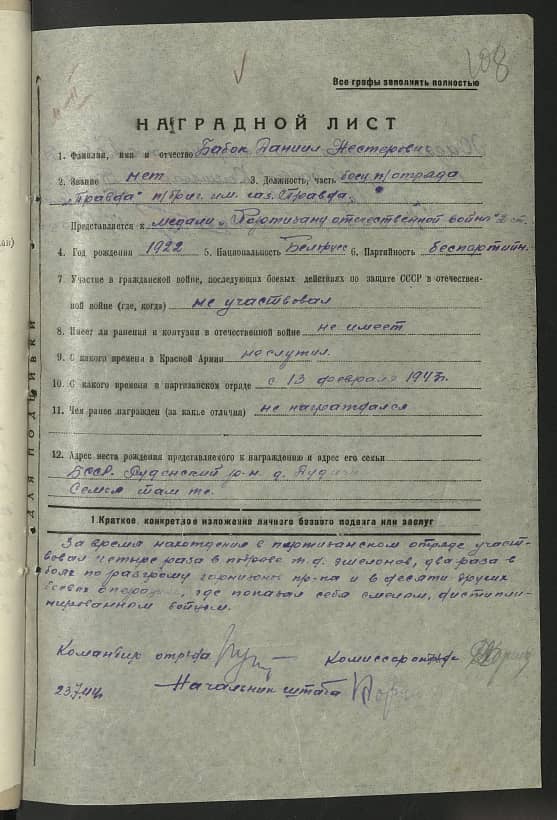 108
Все графы заполнять полностью
НАГРАДНОЙ ЛИСТ
1. Фамилия, имя и отчество Бабок Даниил Нестерович
2. Звание нет 3. Должность, часть боец п/отряда
„Правда" п/бриг. им. газ. Правда
Представляется к медали „Партизану отечественной войны" 2 ст.
4. Год рождения 1922 5. Национальность Белорус 6. Партийность беспартийн.
7. Участие в гражданской войне, последующих боевых действиях по защите СССР в отечествен-
ной войне (где, когда) не участвовал
8. Имеет ли ранения и контузии в отечественной войне не имеет
9. С какого времени в Красной Армии не служил
10. С какого времени в партизанском отряде с 13 февраля 1943г.
11. Чем ранее награжден (за какие отличия) не награждался
12. Адрес места рождения представляемого к награждению и адрес его семьи
БССР. Руденский р-н. д.
Семья там же.
ДЛЯ ПОДШИВКИ
1 Краткое, конкретное изложение личного боевого подвига или заслуг
За время нахождения в партизанском отряде участ-
вовал четыре раза в подрыве ж.д. эшелонов, два раза в
боях по разгрому гарнизонов пр-ка и в десяти других
боевых операциях, где показал себя смелым, дисципли-
нированным бойцом.
Командир отряда Комиссар отряда
23.7.44г. Начальник штаба